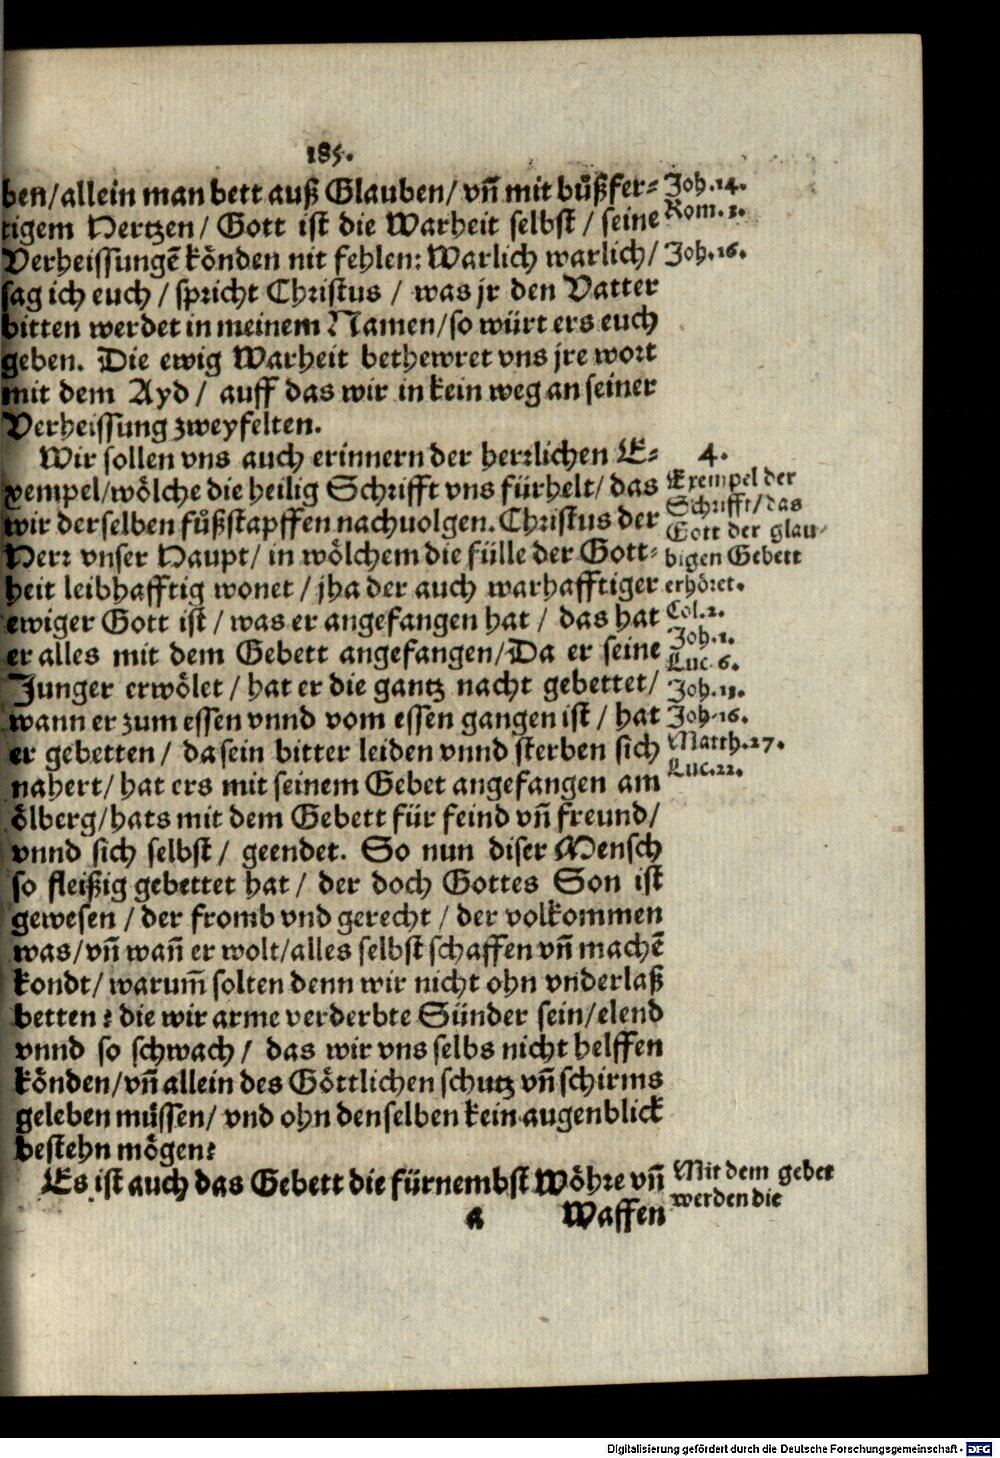 185.
ben/allein man bett auß Glauben/ vñ mit bůßfer⸗
tigem Hertzen/ Gott ist die Warheit selbst/ seine
Verheissungẽ könden nit fehlen: Warlich warlich/
sag ich euch/ spricht Christus/ was jr den Vatter
bitten werdet in meinem Namen/so würt ers euch
geben. Die ewig Warheit bethewret vns jre wort
mit dem Ayd/ auff das wir in kein weg an seiner
Verheissung zweyfelten.
Wir sollen vns auch erinnern der herrlichen E⸗
xempel/wölche die heilig Schrifft vns fürhelt/ das
wir derselben fůßstapffen nachuolgen. Christus der
Herr vnser Haupt/ in wölchem die fülle der Gott⸗
heit leibhafftig wonet/ jha der auch warhafftiger
ewiger Gott ist/ was er angefangen hat/ das hat
er alles mit dem Gebett angefangen/Da er seine
Junger erwölet/ hat er die gantz nacht gebettet/
wann er zum essen vnnd vom essen gangen ist/ hat
er gebetten/ da sein bitter leiden vnnd sterben sich
nahert/ hat ers mit seinem Gebet angefangen am
ölberg/hats mit dem Gebett für feind vñ freund/
vnnd sich selbst/ geendet. So nun diser Mensch
so fleißig gebettet hat/ der doch Gottes Son ist
gewesen/ der fromb vnd gerecht/ der volkommen
was/vñ wañ er wolt/alles selbst schaffen vñ machẽ
kondt/ warum̃ solten denn wir nicht ohn vnderlaß
betten? die wir arme verderbte Sünder sein/elend
vnnd so schwach/ das wir vns selbs nicht helffen
könden/vñ allein des Göttlichen schutz vñ schirms
geleben můssen/ vnd ohn denselben kein augenblick
bestehn mögen?
Es ist auch das Gebett die fürnembst Wöhre vñ
a Waffen
Joh.14.
Rom.3.
Joh.16.
4.
Exempel der
Schrifft/das
Gott der glau⸗
bigen Gebett
erhöret.
Col.2.
Joh.1.
Luc 6.
Joh.13.
Joh.16.
Matth.27.
Luc.22.
Mit dem gebet
werden die
Digitalisierung gefördert durch die Deutsche Forschungsgemeinschaft - DFG